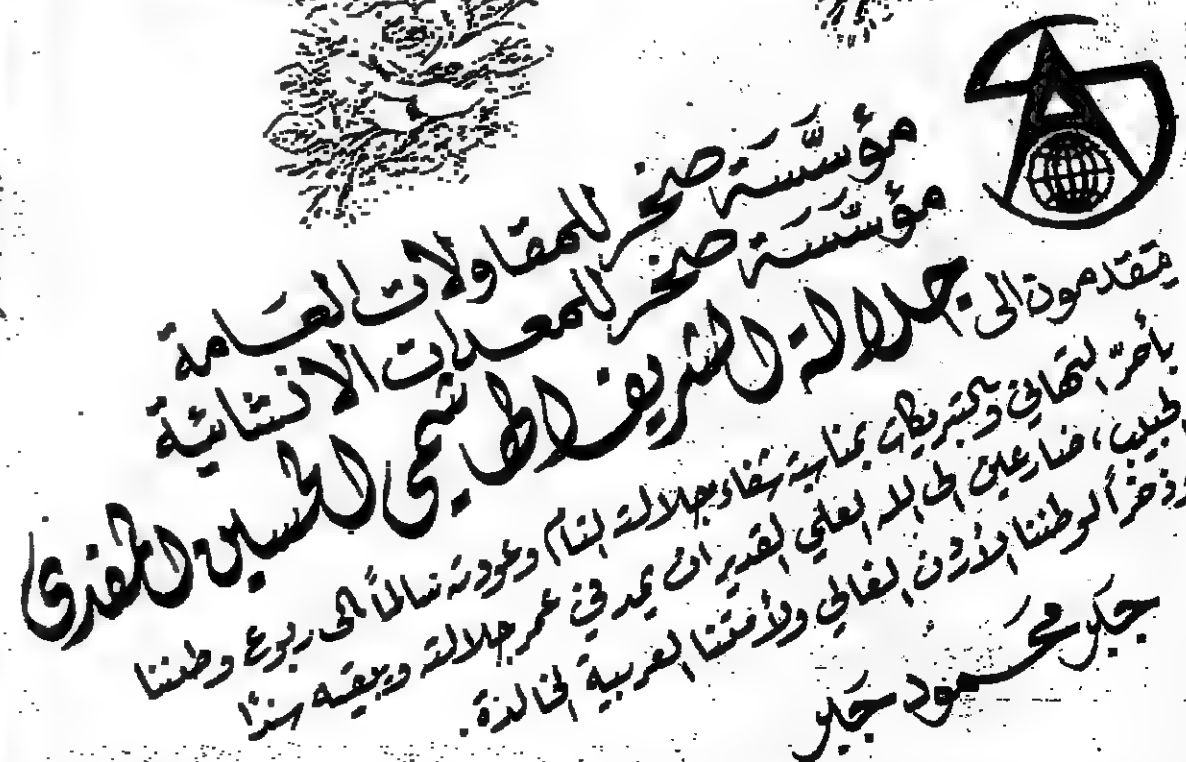 مؤسَّسَة صخر للمقاولات العَامة
مؤسَّسَة صخر للمعدات الانشائية
يتقدمون الى
جلالة الشريف الهاشمي الحسين المفدى
بأحرّ التهاني والتبريكات بمناسبة شفاء جلالته التام وعودته سالماً الى ربوع وطننا
الحبيب، ضارعين الى الله العلي القدير ان يمد في عمر جلالته ويبقيه سنداً
وذخراً لوطننا الأردن الغالي ولأمتنا العربية الخالدة.
جبر محمود جبر